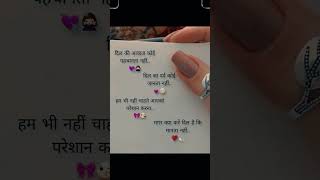 दिल की आवाज कोई
पहचानता नहीं..
दिल का दर्द कोई
जानता नहीं..
हम भी नहीं चाहते आपको
परेशान करना..
मगर क्या करे दिल है कि
मानता नहीं..